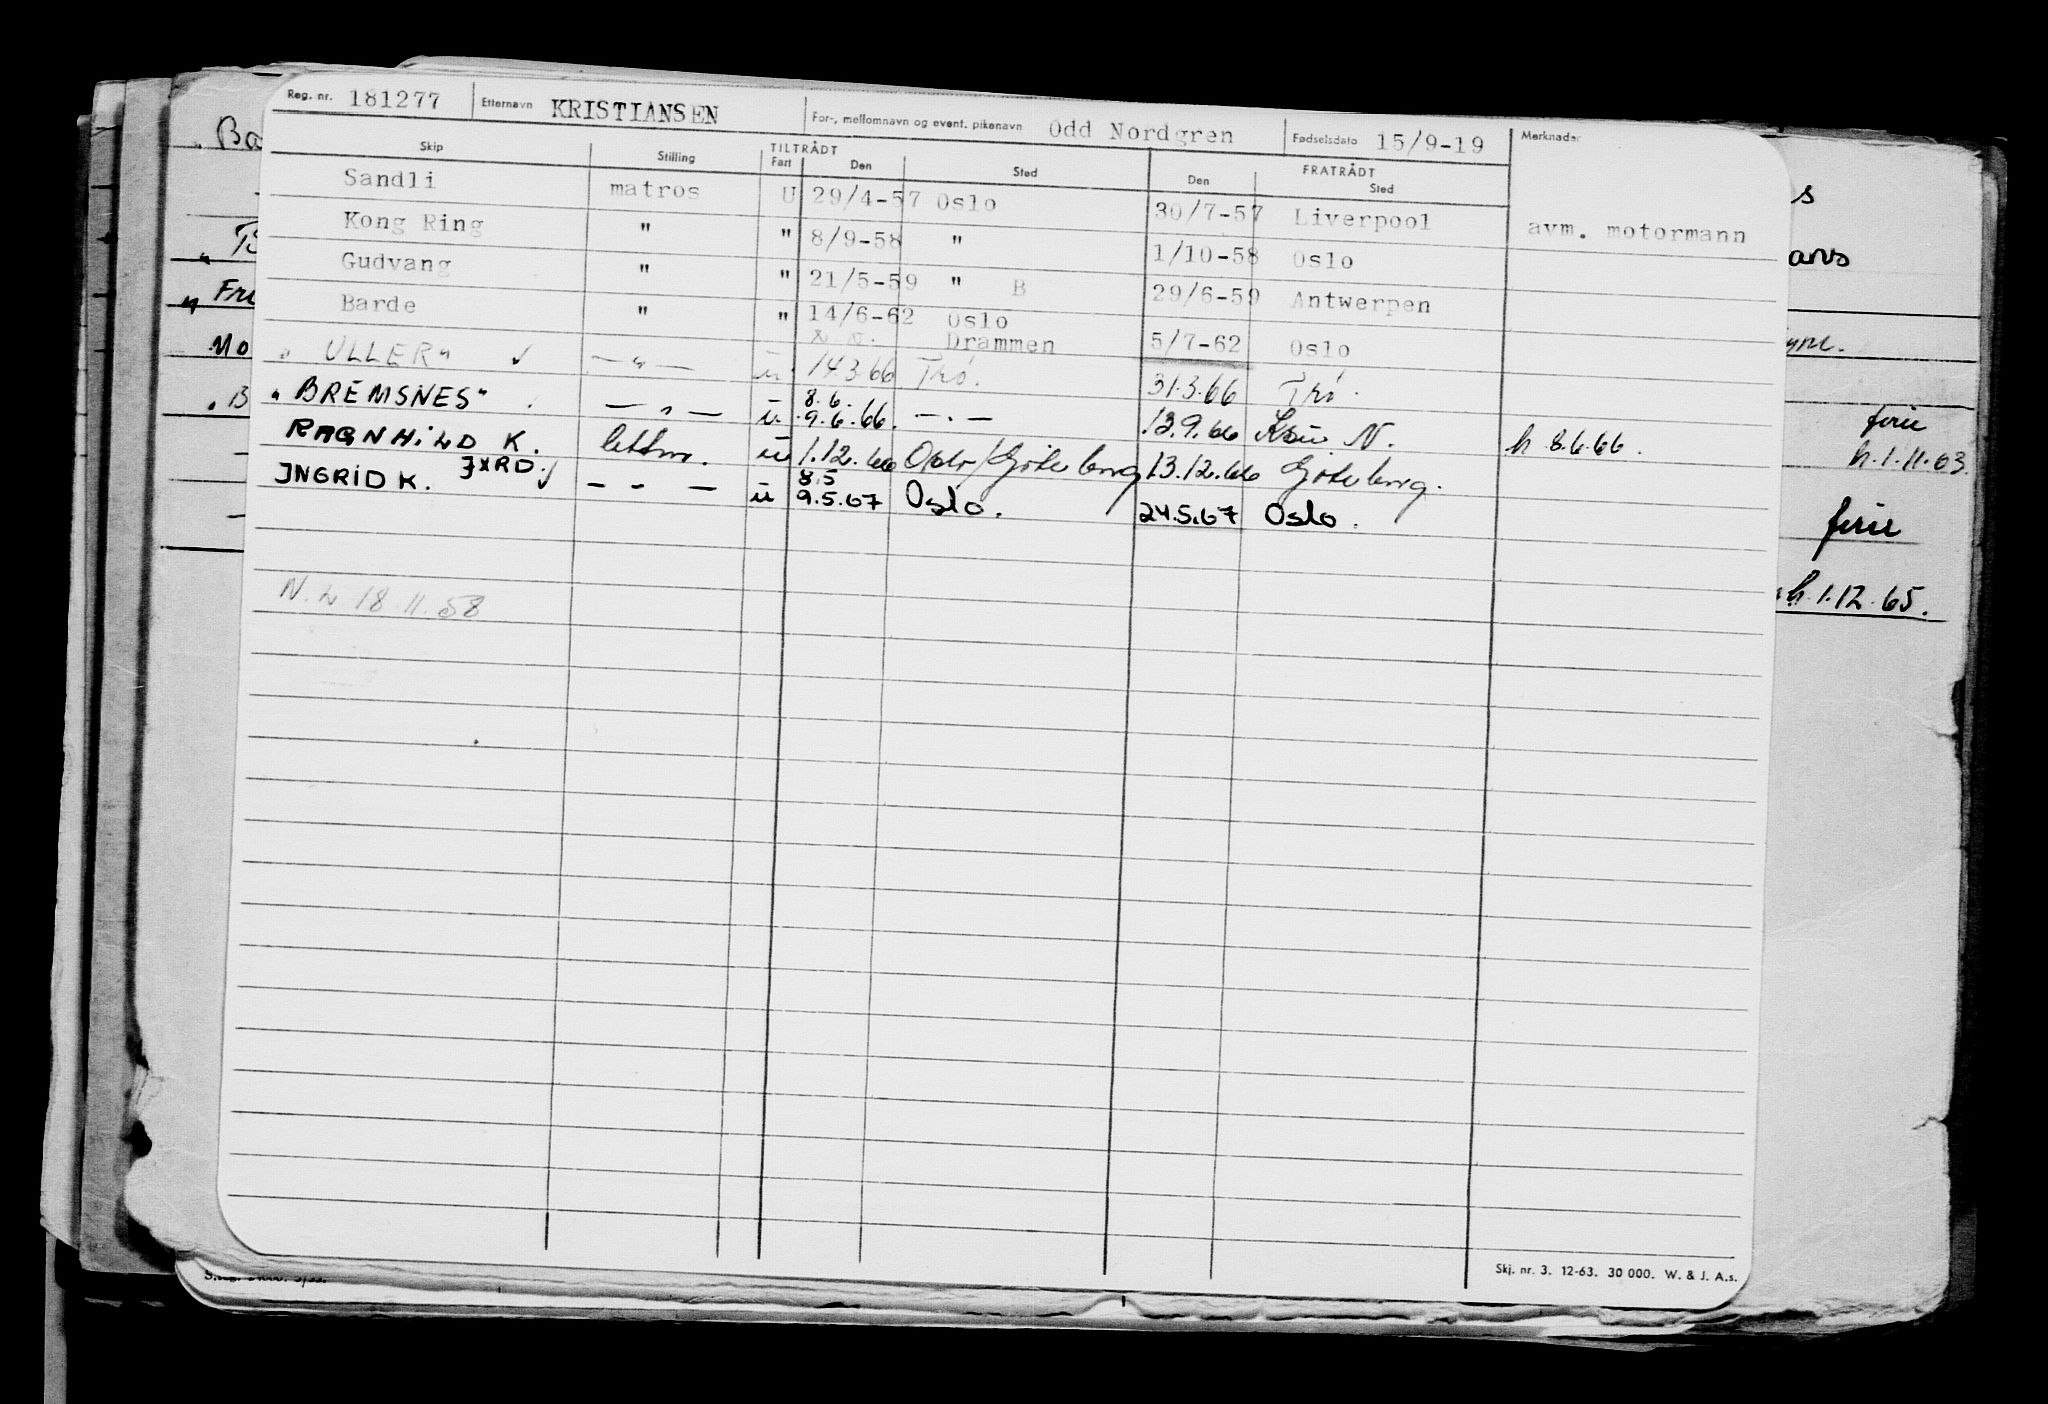 Reg. nr. 181277 Etternavn KRISTIANSEN For-, mellomnavn og event. pikenavn Odd Nordgren Fødselsdato 15/9-19 Merknader
Skip Stilling TILTRÅDT Fart Den Sted FRATRÅDT Den Sted
Sandli matros U 29/4-57 Oslo 30/7-57 Liverpool avm. motormann
Kong Ring " " 8/9-58 " 1/10-58 Oslo
Gudvang " " 21/5-59 " B 29/6-59 Antwerpen
Barde " " 14/6-62 Oslo
Drammen 5/7-62 Oslo
"ULLER" — " — u 14.3.66 Trø. 31.3.66 Trø.
"BREMSNES" — " — u 8.6. 9.6.66. — . — 13.9.66 N. h 8.6.66.
RAGNHILD K. lettm. u 1.12.66 Oslo/Göteborg 13.12.66 Göteborg.
INGRID K. JXRD. — - — u 8.5 9.5.67 Oslo. 24.5.67 Oslo.
N. 18.11.58
Skj. nr. 3. 12-63. 30 000. W. & J. A.s.
ferie
h.1.11.63.
ferie
h.1.12.65.